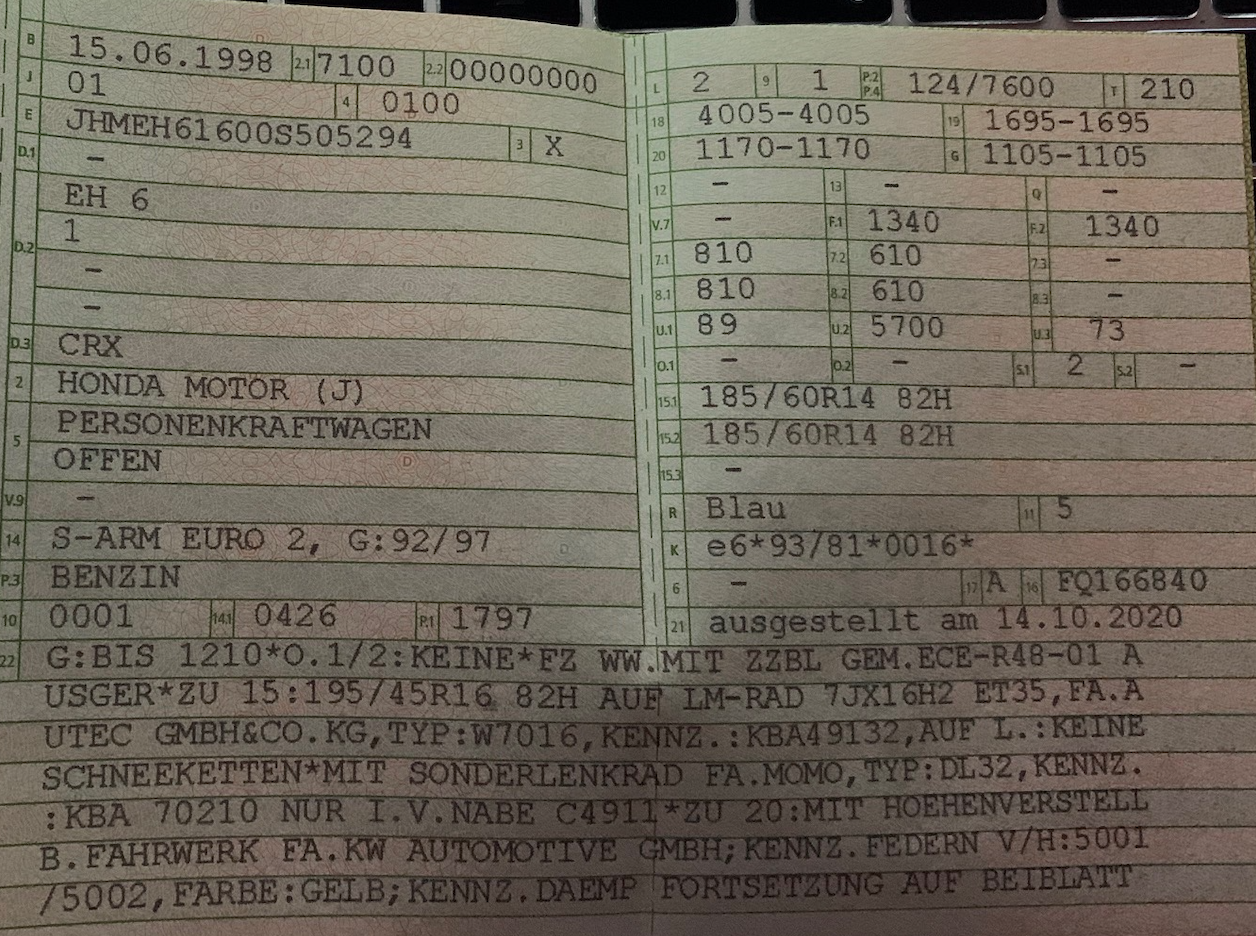 B 15.06.1998 2.1 7100 2.2 00000000
J 01 4 0100
E JHMEH61600S505294 3 X
D.1 –
D.2 EH 6
1
–
–
D.3 CRX
2 HONDA MOTOR (J)
5 PERSONENKRAFTWAGEN
OFFEN
V.9 –
14 S-ARM EURO 2, G:92/97
P.3 BENZIN
10 0001 14.1 0426 P.1 1797
L 2 9 1 P.2 P.4 124/7600 T 210
18 4005-4005 19 1695-1695
20 1170-1170 G 1105-1105
12 – 13 – Q –
V.7 – F.1 1340 F.2 1340
7.1 810 7.2 610 7.3 –
8.1 810 8.2 610 8.3 –
U.1 89 U.2 5700 U.3 73
O.1 – O.2 – S.1 2 S.2 –
15.1 185/60R14 82H
15.2 185/60R14 82H
15.3 –
R Blau 11 5
K e6*93/81*0016*
6 – 17 A 16 FQ166840
21 ausgestellt am 14.10.2020
22 G:BIS 1210*O.1/2:KEINE*FZ WW.MIT ZZBL GEM.ECE-R48-01 A
USGER*ZU 15:195/45R16 82H AUF LM-RAD 7JX16H2 ET35,FA.A
UTEC GMBH&CO.KG,TYP:W7016,KENNZ.:KBA49132,AUF L.:KEINE
SCHNEEKETTEN*MIT SONDERLENKRAD FA.MOMO,TYP:DL32,KENNZ.
:KBA 70210 NUR I.V.NABE C4911*ZU 20:MIT HOEHENVERSTELL
B.FAHRWERK FA.KW AUTOMOTIVE GMBH;KENNZ.FEDERN V/H:5001
/5002,FARBE:GELB;KENNZ.DAEMP FORTSETZUNG AUF BEIBLATT